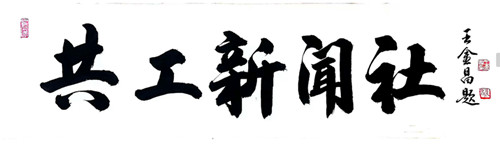 共工新闻社
王金昌题